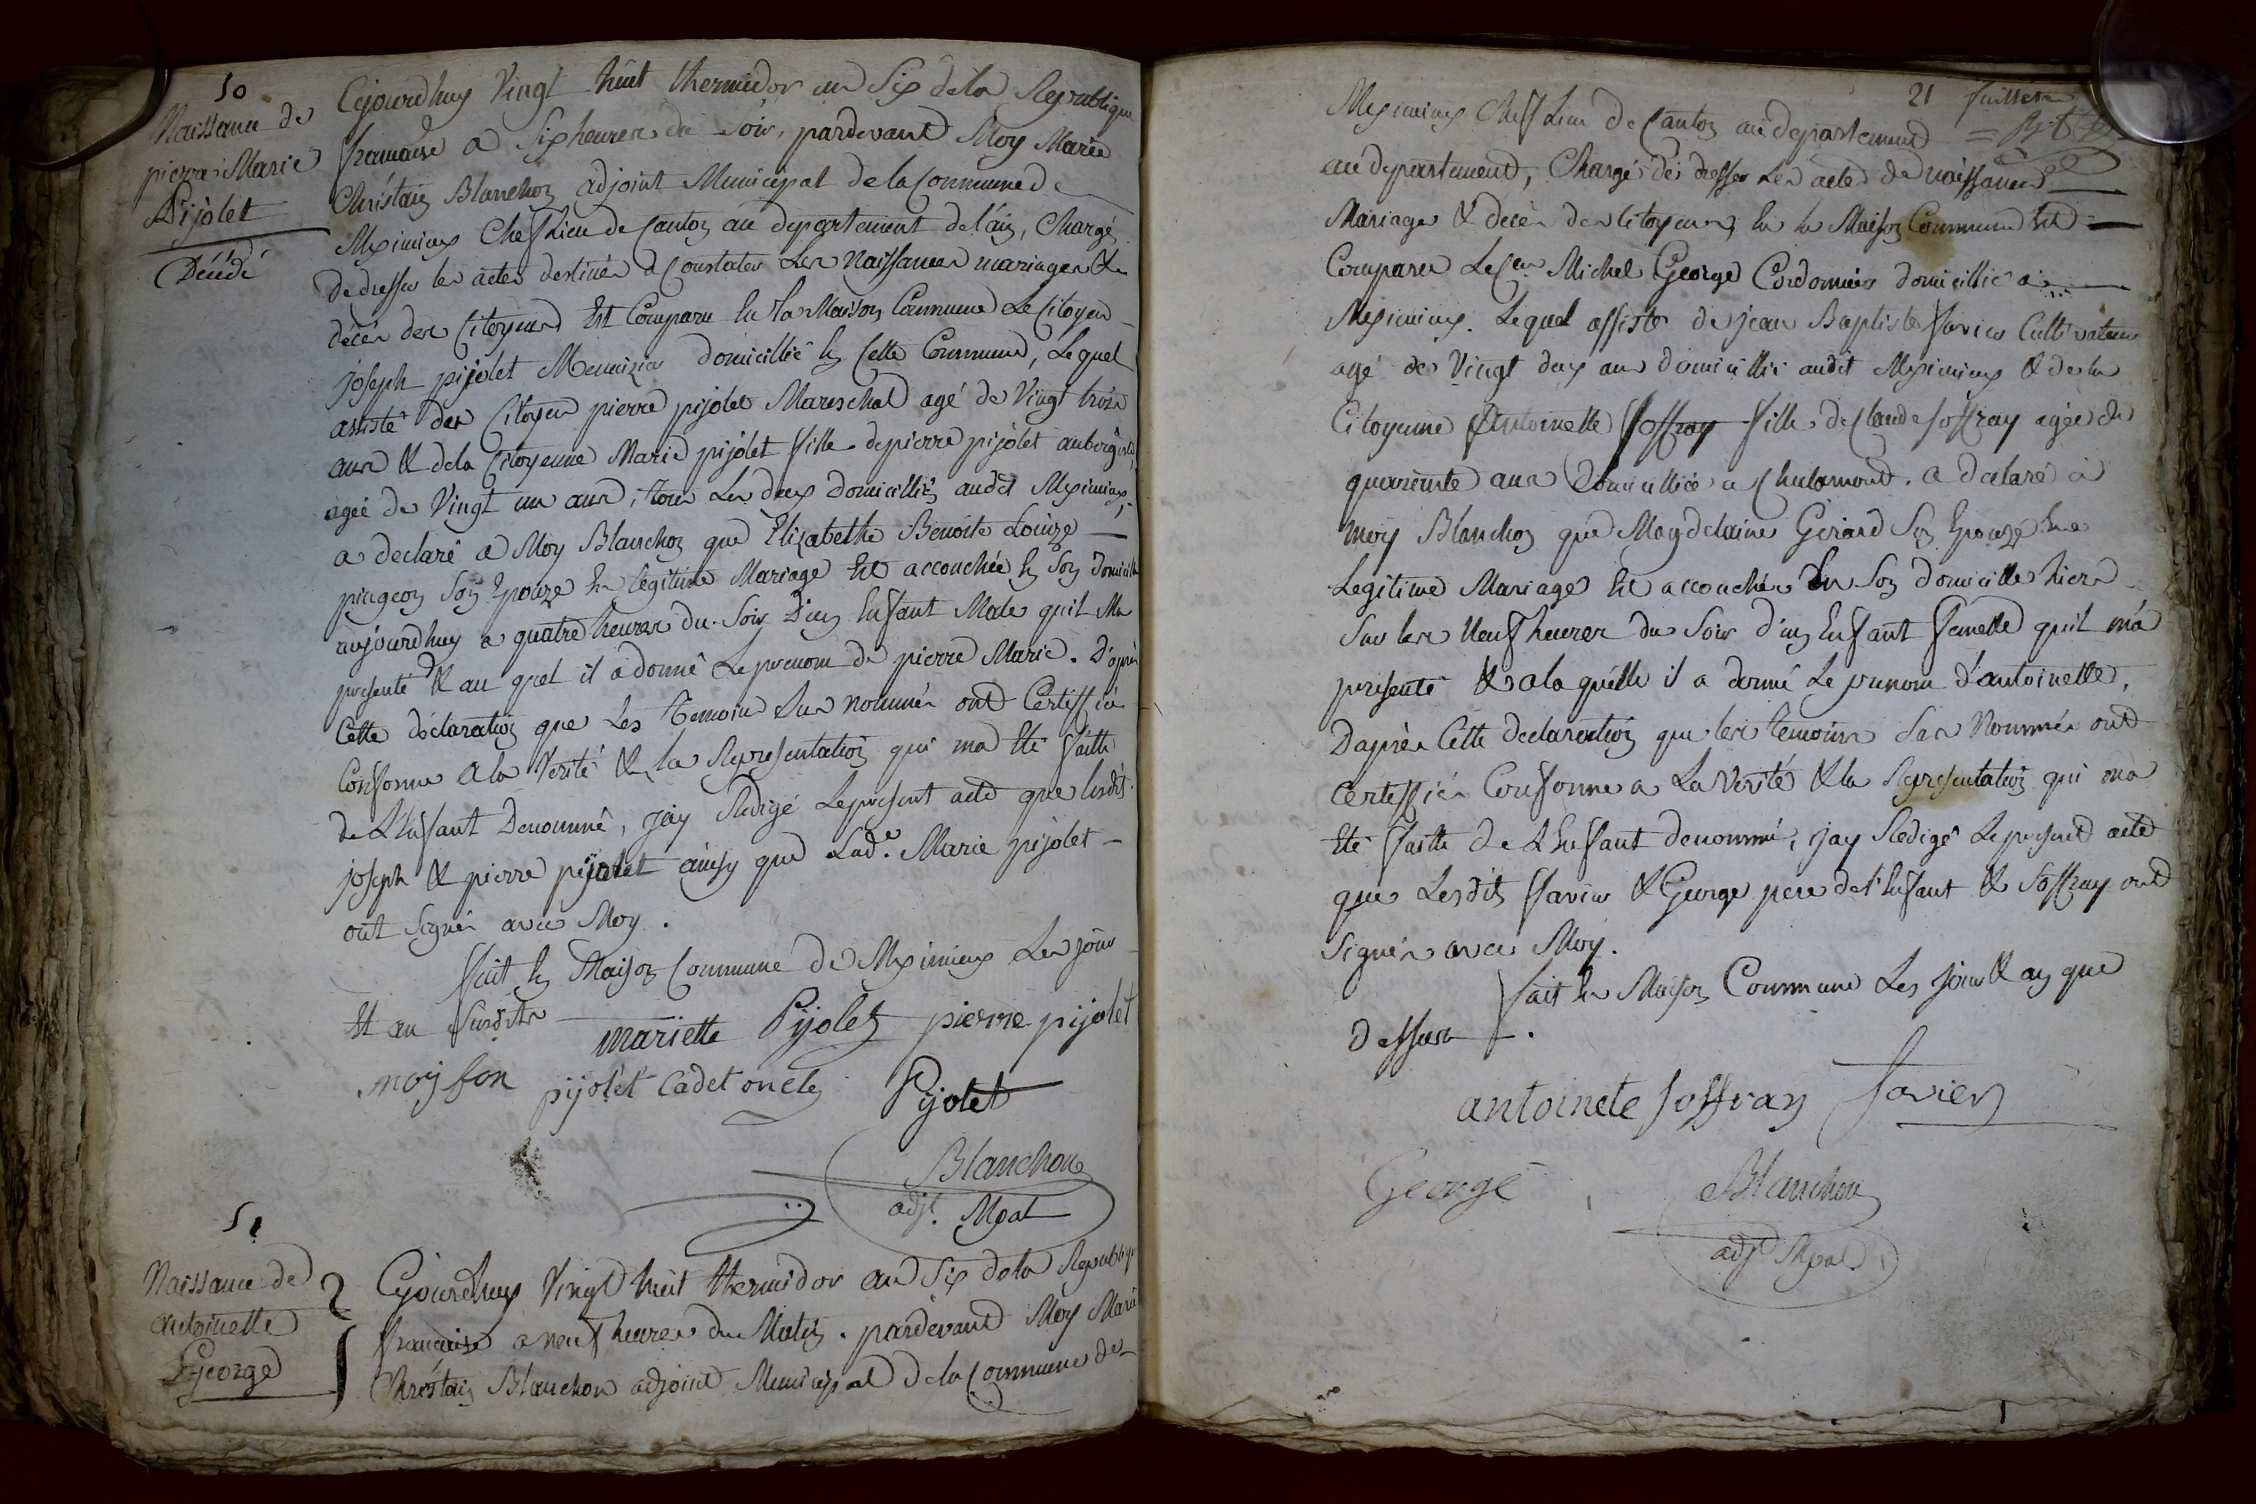 50
Naissance de
pierre Marie
Pijolet
Décédé
Cejourdhuy Vingt huit thermidor an Six dela Republique
francaise a Six heures du Soir, pardevant Moy Marie
Christain Blanchon adjoint Municipal de la Commune de
Meximieux Chef Lieu de Canton au departement de l'ain, Chargé
de dresser les actes destinés a Constater Les Naissances mariages &
décés des Citoyens Est Comparu En la Maison Commune Le Citoyen
joseph pijolet Menuizier domicillié En Cette Commune, Lequel
assisté des Citoyen pierre pijolet Mareschal agé de Vingt trois
ans & dela Citoyenne Marie pijolet fille de pierre pijolet aubergiste,
agée de Vingt un ans, tous Les deux domicilliés audit Meximieux,
a declaré a Moy Blanchon que Elizabethe Benoite Louize
pingeon Son Epouze En legitime Mariage Est accouchée En Son domicille
aujourdhuy a quatre heures du Soir D'un Enfant Male quil Ma
presenté & au quel il a donné Le prenom de pierre Marie. D'après
Cette déclaration que Les temoins Sus nommés ont Certiffiés
Conforme a la Verité & la Representation qui ma Eté faitte
de L'Enfant Denommé, jay Redigé Lepresent acte que lesdits
joseph & pierre pijolet ainsy que Lad.e Marie pijolet
ont Signés avec Moy.
fait En Maison Commune de Meximieux Les jour
Et an Susdits
mariette Pijolet pierre pijolet
pijolet Cadet oncle Pijolet
Blanchon
adjt. Mpal
51
Naissance de
antoinette
George
Cejourdhuy Vingt huit thermidor an Six dela Republique
francaise a neuf heures du Matin. pardevant Moy Marie
Christain Blanchon adjoint Municipal de la Commune de
21 feuillet
Meximieux Chef Lieu de Canton au departement
au departement, Chargé de dresser Les actes de naissances
Mariages & décès des Citoyens, En la Maison Commune Est
Comparu Le Cen Michel George Cordonnier domicillié a
Meximieux. Lequel assisté de jean Baptiste favier Cultivateur
agé de Vingt deux ans domicillié audit Meximieux & de la
Citoyenne Antoinette Soffray fille de Claude Soffray agée de
quarente ans Domicilliée a Chalamont. a declaré a
moy Blanchon que Magdelaine Gerard Son Epouze En
Legitime Mariage Est accouchée En Son domicille hier
Sur les Neuf heures du Soir d'un Enfant femelle quil m'a
presenté & a la quelle il a donné Le prenom d'antoinette,
D'après Cette declaration que les temoins Sus Nommés ont
Certiffiés Conforme a La Verité & la Representation qui ma
Eté faitte de L'Enfant denommé, jay Redigé Lepresent acte
que Lesdits favier & George pere de l'Enfant & Soffray ont
Signés avec Moy.
fait En Maison Commune Les jour & an que
dessus.
antoinete Soffray favier
George
Blanchon
adjt Mpal